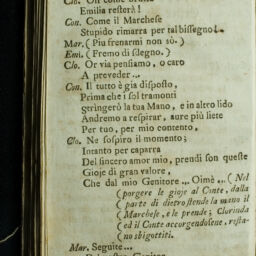 Emilia resterà!
Con. Come il Marchese
Stupido rimarra per tal bissegno!
Mar. (Piu frenarmi non sò.)
Emi. (Fremo di sdegno.)
Clo. Or via pensiamo, o caro
A preveder ...
Con. Il tutto è già disposto,
Prima che i sol tramonti
Stringerò la tua Mano, e in altro lido
Andremo a respirar, aure più liete
Per tuo, per mio contento,
Clo. Ne sospiro il momento;
Intanto per caparra
Del sincero amor mio, prendi son queste
Gioje di gran valore,
Che dal mio Genitore ... Oimè ... (Nel
(porgere le gioje al Conte, dalla
(parte di dietro stende la mano il
(Marchese, e le prende; Clorinda
(ed il Conte accorgendosene, resta-
(no sbigottiti.
Mar. Seguite ...